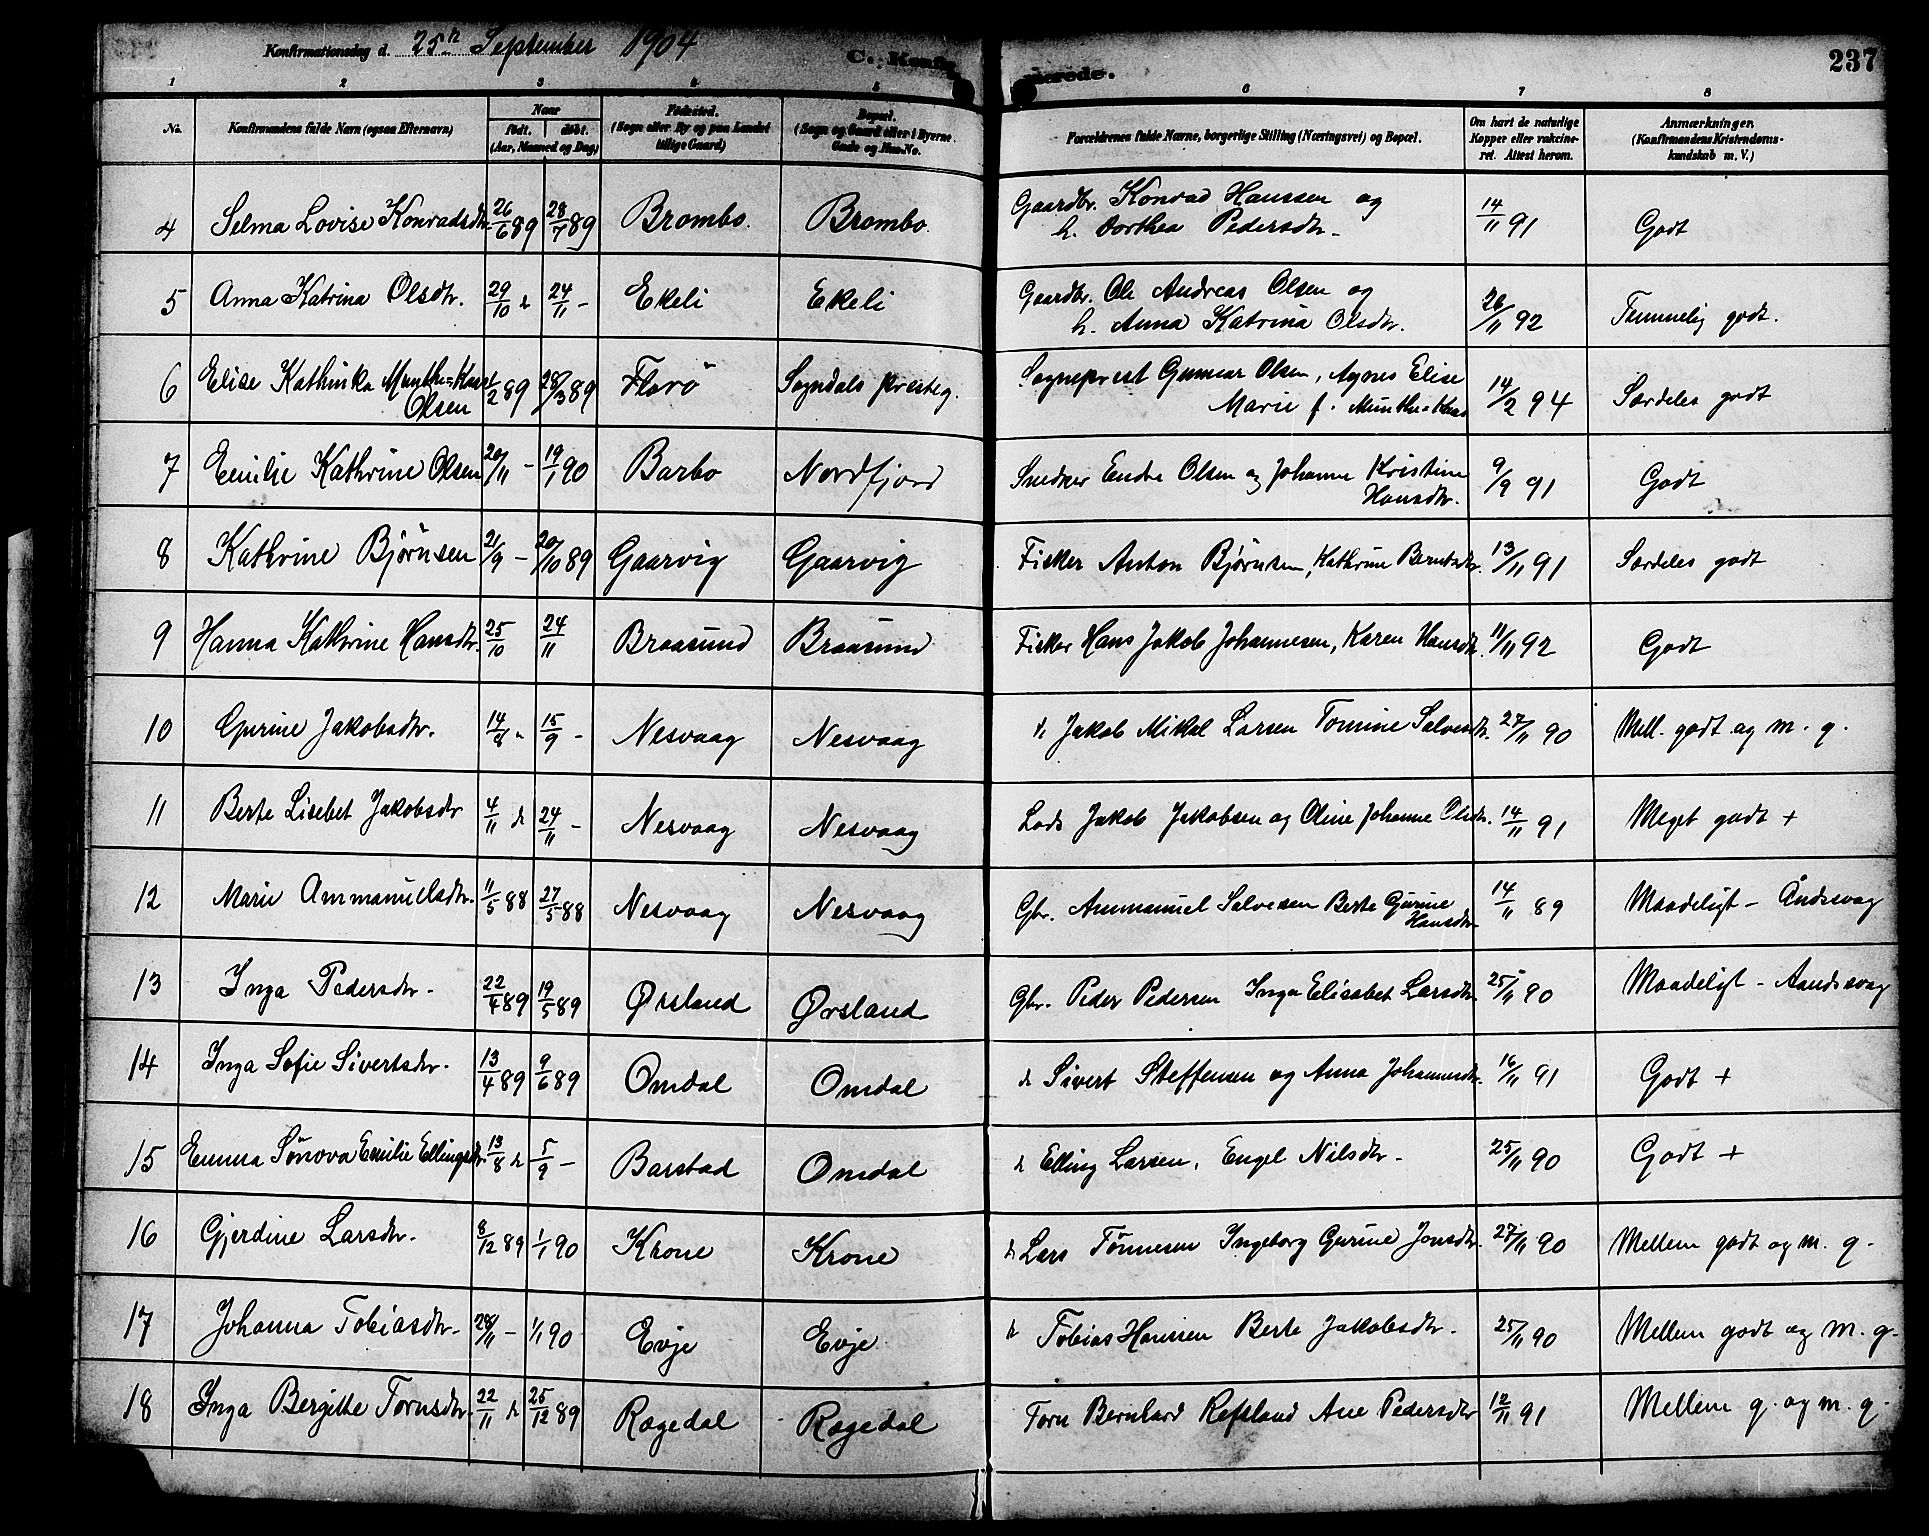 Konfirmationsdag d. 25de September 1904 C. Konfirmerede. 237
1 2 3 4 5 6 7 8
No. Konfirmandens fulde Navn (ogsaa Efternavn) Naar født. døbt. (Aar, Maaned og Dag) Fødested. (Sogn eller By og paa Landet tillige Gaard) Bopæl. (Sogn og Gaard eller i Byerne Gade og Hus-No. Forældrenes fulde Navne, borgerlige Stilling (Næringsvei) og Bopæl. Om havt de naturlige Kopper eller vakcineret. Attest herom. Anmærkninger. (Konfirmandens Kristendomskundskab m. V.)
4 Selma Lovise Konradsdtr. 26/6 89 28/7 89 Brombo. Brombo. Gaardbr. Konrad Hanssen og
h. Dorthea Pedersdtr. 14/11 91 Godt
5 Anna Katrina Olsdtr. 29/10 24/11 - Ekeli Ekeli Gaardbr. Ole Andreas Olsen og
h. Anna Katrina Olsdtr. 26/11 92 Temmelig godt.
6 Elise Kathinka Munthe-Kaas
Olsen 1/2 89 28/3 89 Florö Sogndals presteg. Sogneprest Gunnar Olsen, Agnes Elise
Marie f. Munthe-Kaas 14/2 94 Særdeles godt
7 Emilie Kathrine Olsen 20/11 - 19/1 90 Barbo Nordfjord Snedker Endre Olsen og Johanne Kristine
Hansdtr. 9/9 91 Godt
8 Kathrine Bjørnsen 21/9 - 20/10 89 Gaarvig Gaarvig Fisker Anton Bjørnsen, Kathrine Berntsdtr. 13/11 91 Særdeles godt
9 Hanna Kathrine Hansdtr. 25/10 24/11 Braasund Braasund Fisker Hans Jakob Johannesen, Karen Hansdtr. 11/11 92 Godt
10 Gurine Jakobsdtr. 14/8 15/9 - Nesvaag Nesvaag Jakob Mikal Larsen Tomine Salvesdtr. 27/11 90 Mell. godt og m. g.
11 Berte Lisebet Jakobsdtr 4/11 24/11 - Nesvaag Nesvaag Lods Jakob Jakobsen og Oline Johanne Olsdtr. 14/11 91 Meget godt +
12 Marie Ammanuelsdtr. 11/5 88 27/5 88 Nesvaag Nesvaag Gbr. Ammanuel Salvesen Berte Gurine
Hansdtr 14/11 89 Maadeligt - Åndssvag
13 Inga Pedersdtr. 22/4 89 19/5 89 Ørsland Ørsland Gbr. Peder Pedersen Inga Elisabet Larsdtr. 25/11 90 Maadeligt - Aandssvag
14 Inga Sofie Sivertsdtr. 13/4 89 9/6 89 Omdal Omdal Sivert Steffensen og Anna Johannesdtr. 16/11 91 Godt +
15 Emma Sönova Emilie Ellingsdtr. 13/8 5/9 - Barstad Omdal Elling Larsen, Engel Nilsdtr. 25/11 90 Godt +
16 Gjerdine Larsdtr. 8/12 89 1/1 90 Krone Krone Lars Tönnesen Ingeborg Gurine Jonsdtr. 27/11 90 Mellem godt og m. g.
17 Johanna Tobiasdtr. 28/11 - 1/1 90 Evje Evje Tobias Hanssen Berte Jakobsdtr. 25/11 90 Mellem godt og m. g.
18 Inga Bergitte Tornsdtr. 22/11 25/12 89 Rægedal Rægedal Torn Bernhard Refsland Ane Pedersdtr 12/11 91 Mellem g. og m. g.